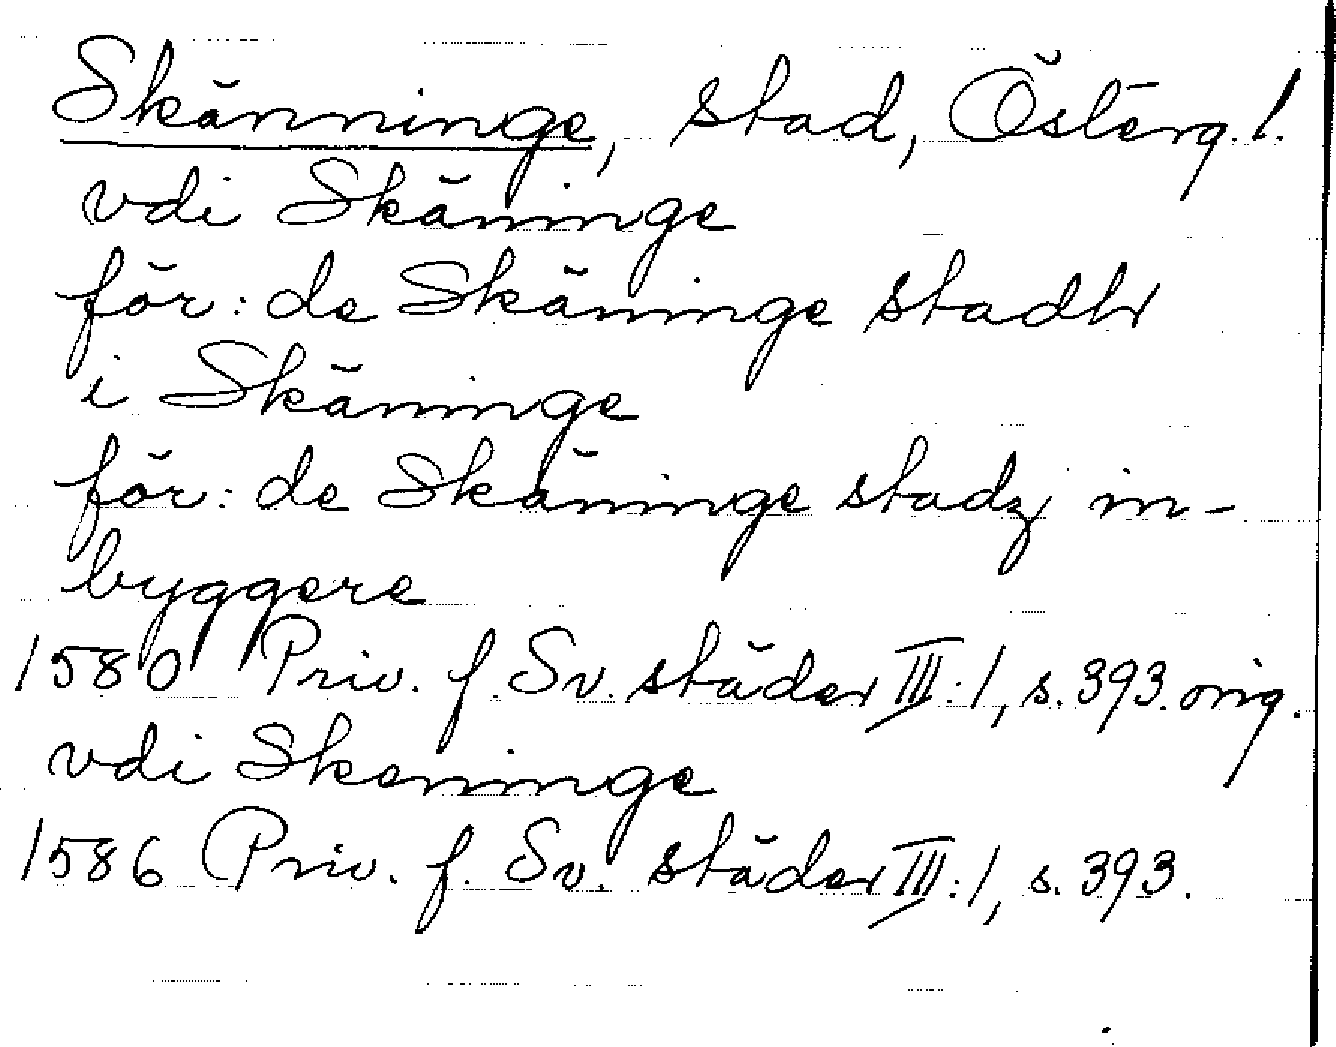 Skänninge, stad, Österg. l.
vdi Skäninge
för: de Skäninge stadtz
i Skäninge
för: de Skäninge stadz in-
byggere
1580 Priv. f. Sv. städer III:1, s. 393. orig.
vdi Skeninge
1586 Priv. f. Sv. städer III:1, s. 393.